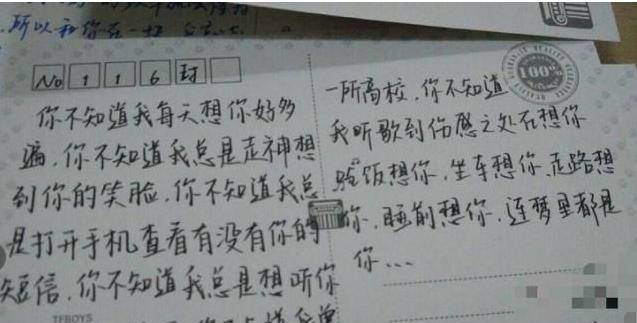 所以和你在一起
No 1 1 6 封
你不知道我每天想你好多
遍,你不知道我总是走神想
到你的笑脸,你不知道我总
是打开手机查看有没有你的
短信,你不知道我总是想听你
TFBOYS
一所高校,你不知道
我听歌到伤感之处在想你
吃饭想你,坐车想你,走路想
你,睡前想你,连梦里都是
你...
100%